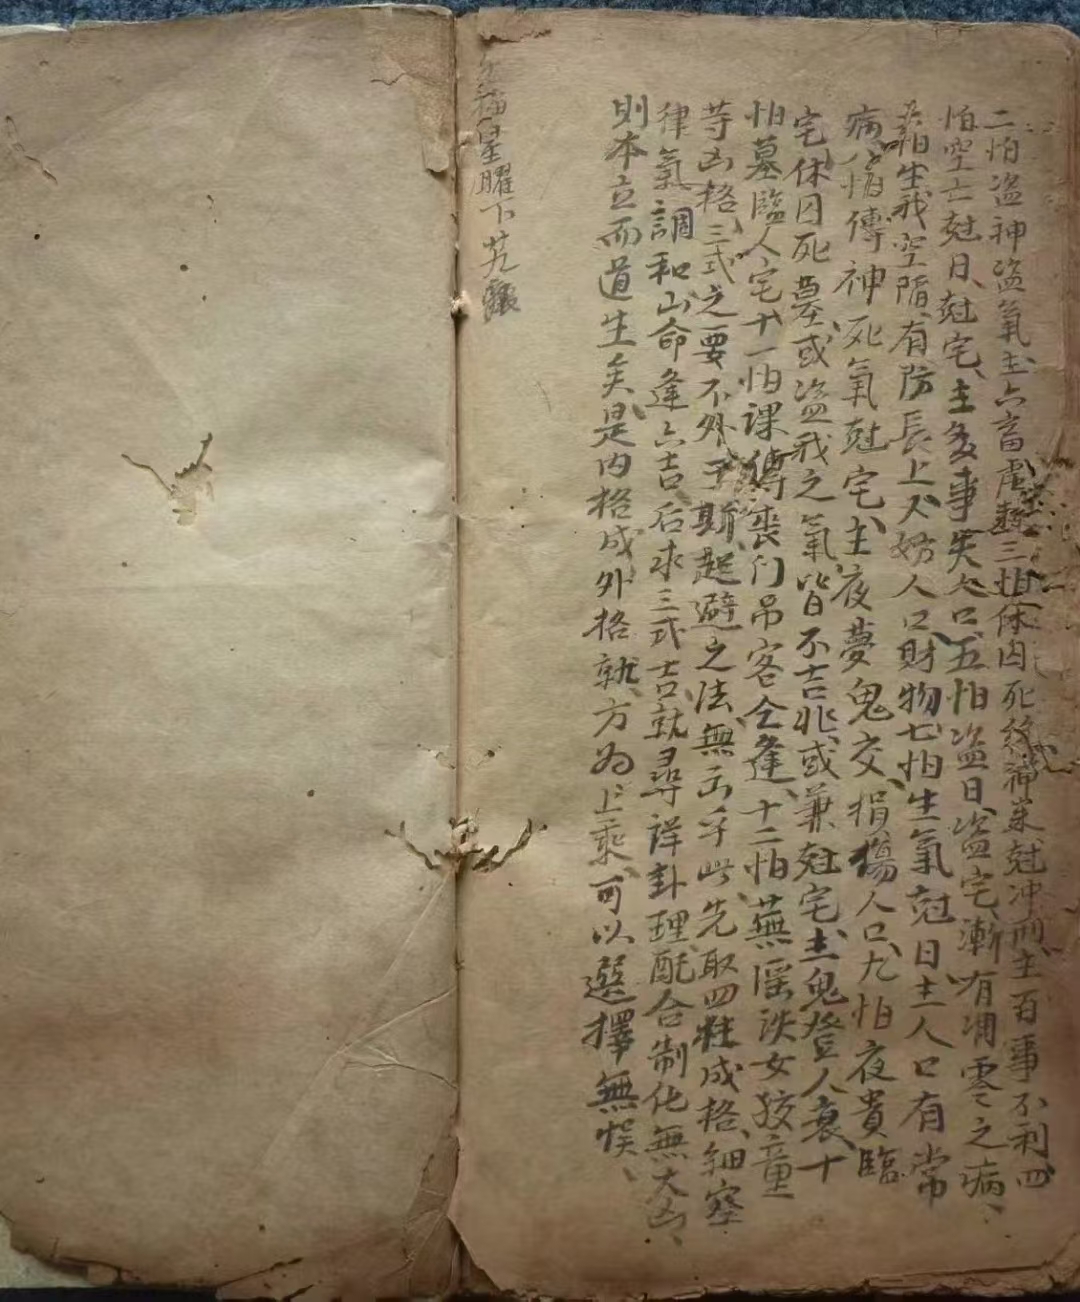 二怕盗神盗氣主六畜虚耗三怕休囚死終神来尅冲刑主百事不利四
怕空亡尅日尅宅主多事失人口五怕盗日盗宅漸有凋零之病
六怕生我空陷有防長上又妨人口財物七怕生氣尅日主人口有常
病八怕傳神死氣尅宅主夜夢鬼交損傷人口九怕夜貴臨
宅休囚死墓或盗我之氣皆不吉兆或兼尅宅主鬼登人衰十
怕墓臨人宅十一怕課傳喪门吊客仝逢十二怕蕪淫泆女狡童
等凶格三式之要不外于斯起避之法無出乎此先取四柱成格細察
律氣調和山命逢六吉后求三式吉就尋詳卦理配合制化無大凶
則本立而道生矣是内格成外格就方为上乘可以選擇無悮
福星曜下